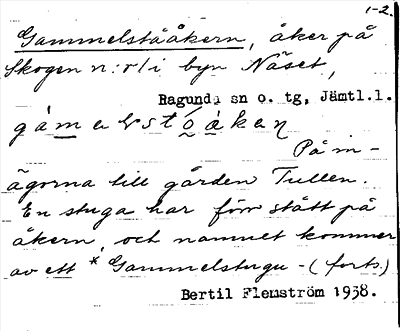 1-2.
Gammelstååkern, åker på
skogen n:r 1 i byn Näset,
Ragunda sn o. tg, Jämtl.l.
På in-
ägorna till gården Tullen.
En stuga har förr stått på
åkern, och namnet kommer
av ett *Gammelstugu-(forts.)
Bertil Flemström 1938.